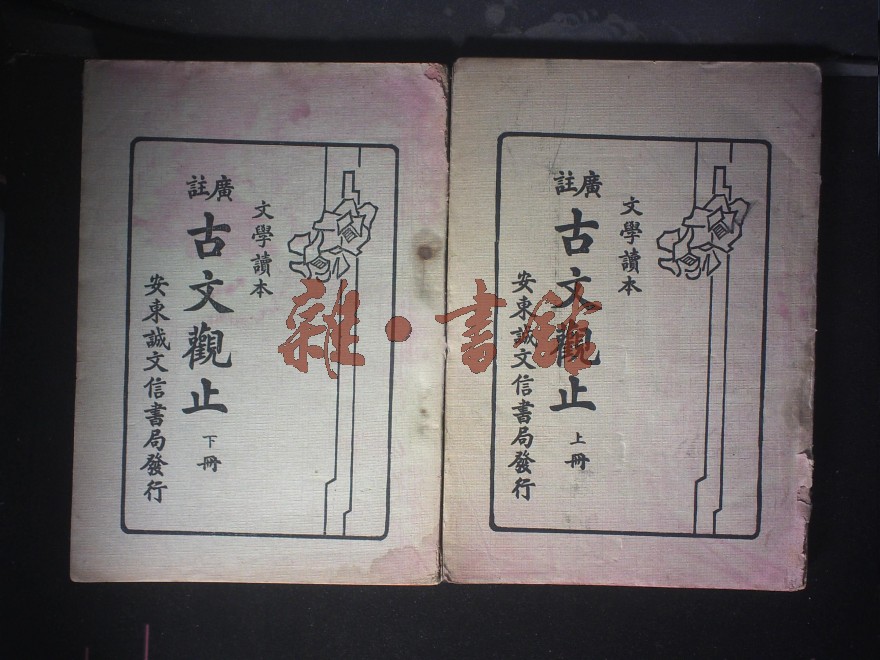 文學讀本
廣註
古文觀止 上冊
安東誠文信書局發行
文學讀本
廣註
古文觀止 下冊
安東誠文信書局發行
雜·書館